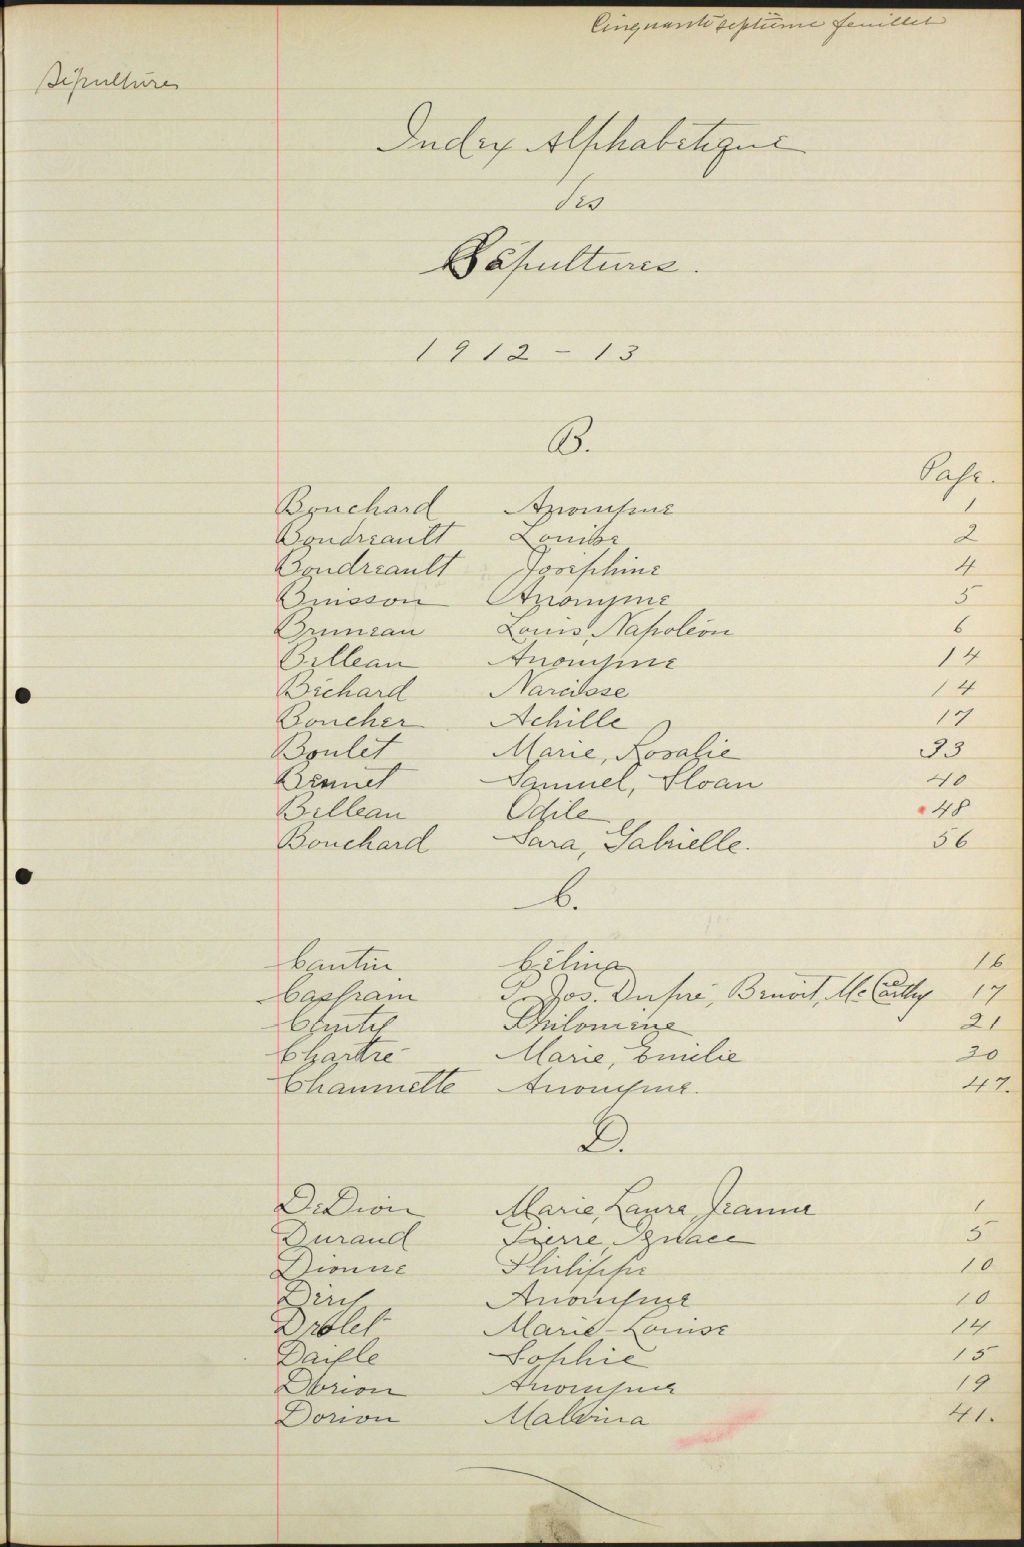 Cinquante septième feuillet
Sépultures
Index Alphabétique
des
Sépultures.
1912-13
B.
Page.
Bouchard Anonyme 1
Boudreault Louise 2
Boudreault Joséphine 4
Buisson Anonyme 5
Bruneau Louis, Napoléon 6
Billeau Anonyme 14
Béchard Narcisse 14
Boucher Achille 17
Boulet Marie, Rosalie 33
Bennet Samuel, Sloan 40
Belleau Odile 48
Bouchard Sara, Gabrielle. 56
C.
Cantin Célina 16
Casgrain P. Jos. Dupré, Benoit, McCarthy 17
Philomène 21
Chartré Marie, Emélie 30
Chaumette Anonyme. 47.
D.
DeDion Marie, Laura, Jeanne 1
Durand Pierre, Ignace 5
Dionne Philippe 10
Déry Anonyme 10
Drolet Marie-Louise 14
Daigle Sophie 15
Dorion Anonyme 19
Dorion Malvina 41.